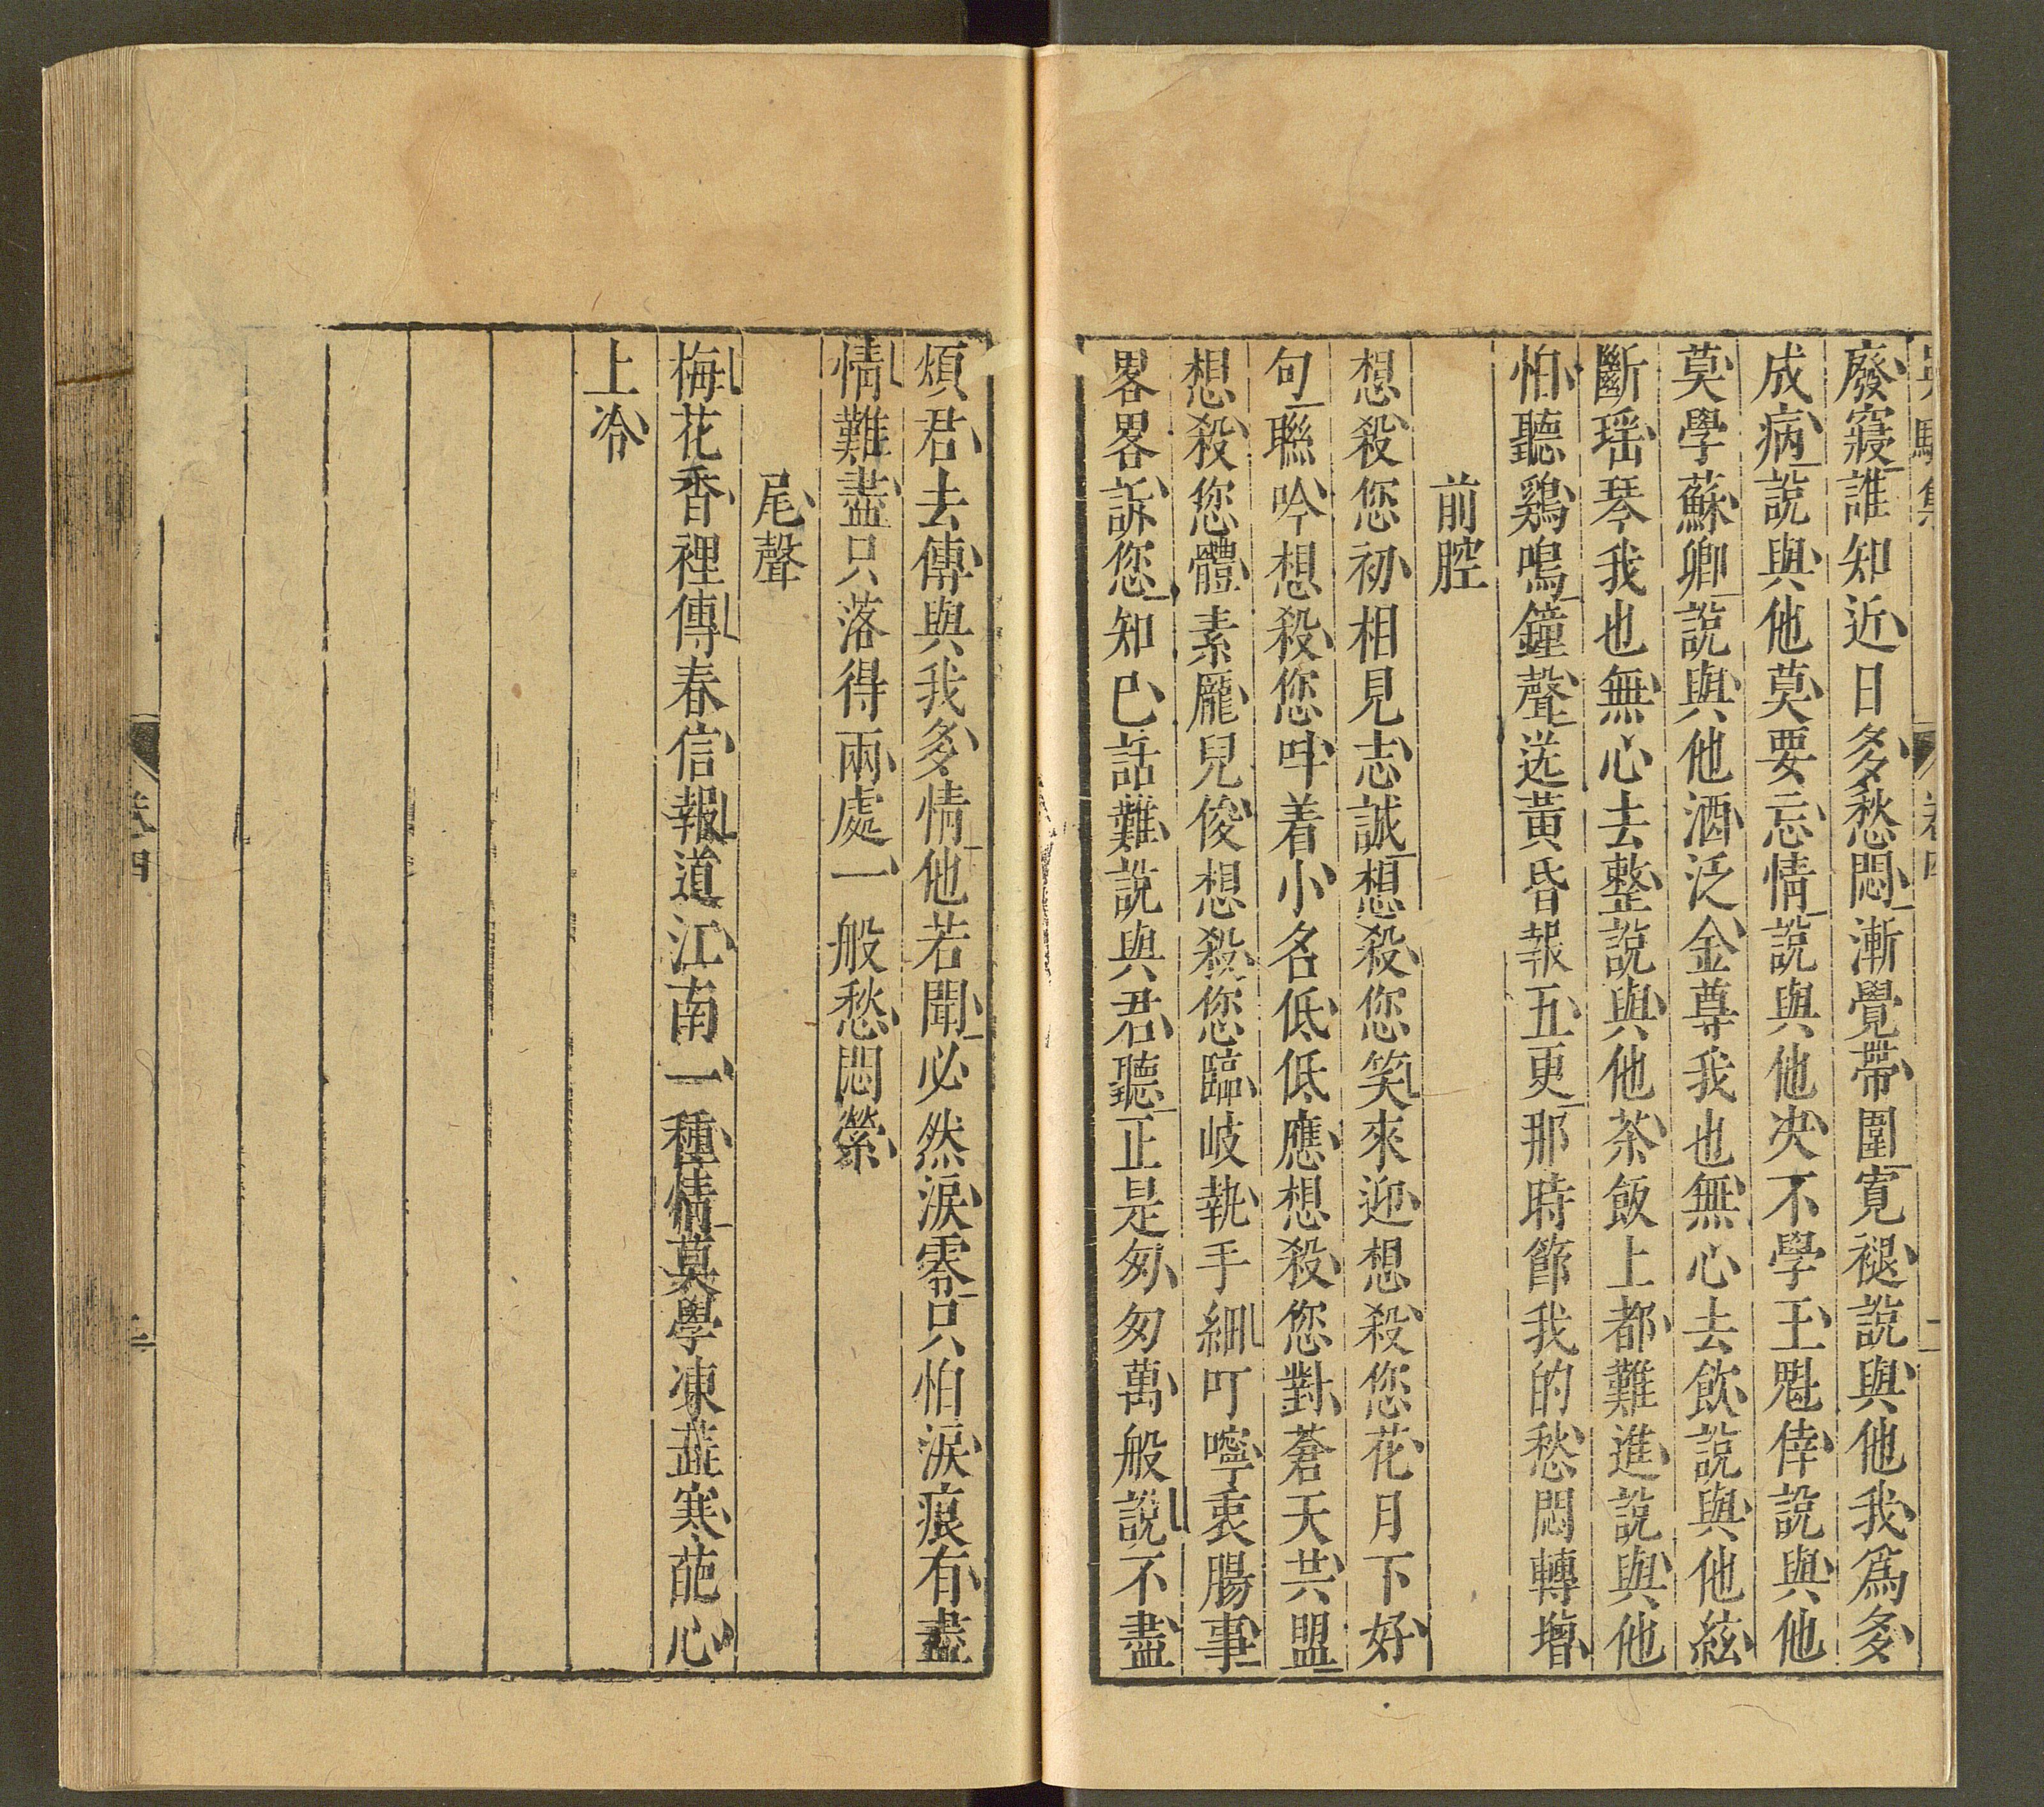 廢寢誰知近日多愁悶漸覺帶圍寬褪說與他我為多
成病說與他莫要忘情說與他决不學王魁倖說與他
莫學蘇卿說與他酒泛金尊我也無心去飲說與他絃
斷瑶琴我也無心去整說與他茶飯上都難進說與他
怕聽鷄鳴鐘聲送黃昏報五更那時節我的愁悶轉增
前腔
想殺您初相見志誠想殺您笑來迎想殺您花月下好
句聮吟想殺您吽着小名低低應想殺您對蒼天共盟
想殺您體素龐兒俊想殺您臨岐執手細叮嚀衷腸事
畧畧訴您知已話難說與君聽正是匆匆萬般說不盡
煩君去傳與我多情他若聞必然淚零只怕淚痕有盡
情難盡只落得兩處一般愁悶縈
尾聲
梅花香裡傳春信報道江南一種情莫學凍蕋寒葩心
上冷
卷四